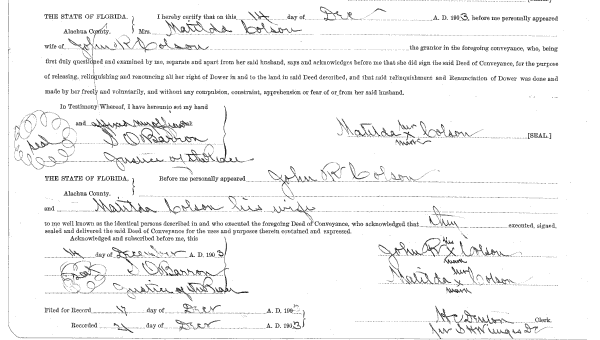 THE STATE OF FLORIDA. I hereby certify that on this 14 day of Dec A. D. 1903, before me personally appeared
Alachua County. Mrs. Matilda Colson
wife of John R Colson the grantor in the foregoing conveyance, who, being
first duly questioned and examined by me, separate and apart from her said husband, says and acknowledges before me that she did sign the said Deed of Conveyance, for the purpose
of releasing, relinquishing and renouncing all her right of Dower in and to the land in said Deed described, and that said relinquishment and Renunciation of Dower was done and
made by her freely and voluntarily, and without any compulsion, constraint, apprehension or fear of or from her said husband.
In Testimony Whereof, I have hereunto set my hand
and
seal O Barron
Matilda her x mark Colson [SEAL.]
Justice of the Peace
THE STATE OF FLORIDA. Before me personally appeared John R Colson
Alachua County.
and Matilda Colson his wife
to me well known as the identical persons described in and who executed the foregoing Deed of Conveyance, who acknowledged that they executed, signed,
sealed and delivered the said Deed of Conveyance for the uses and purposes therein contained and expressed.
Acknowledged and subscribed before me, this
14 day of December A. D. 1903
John R his x mark Colson
seal O Barron
Matilda her x mark Colson
Justice of the Peace
Filed for Record day of Decr A. D. 190
Clerk.
Recorded 21 day of Decr A. D. 1903